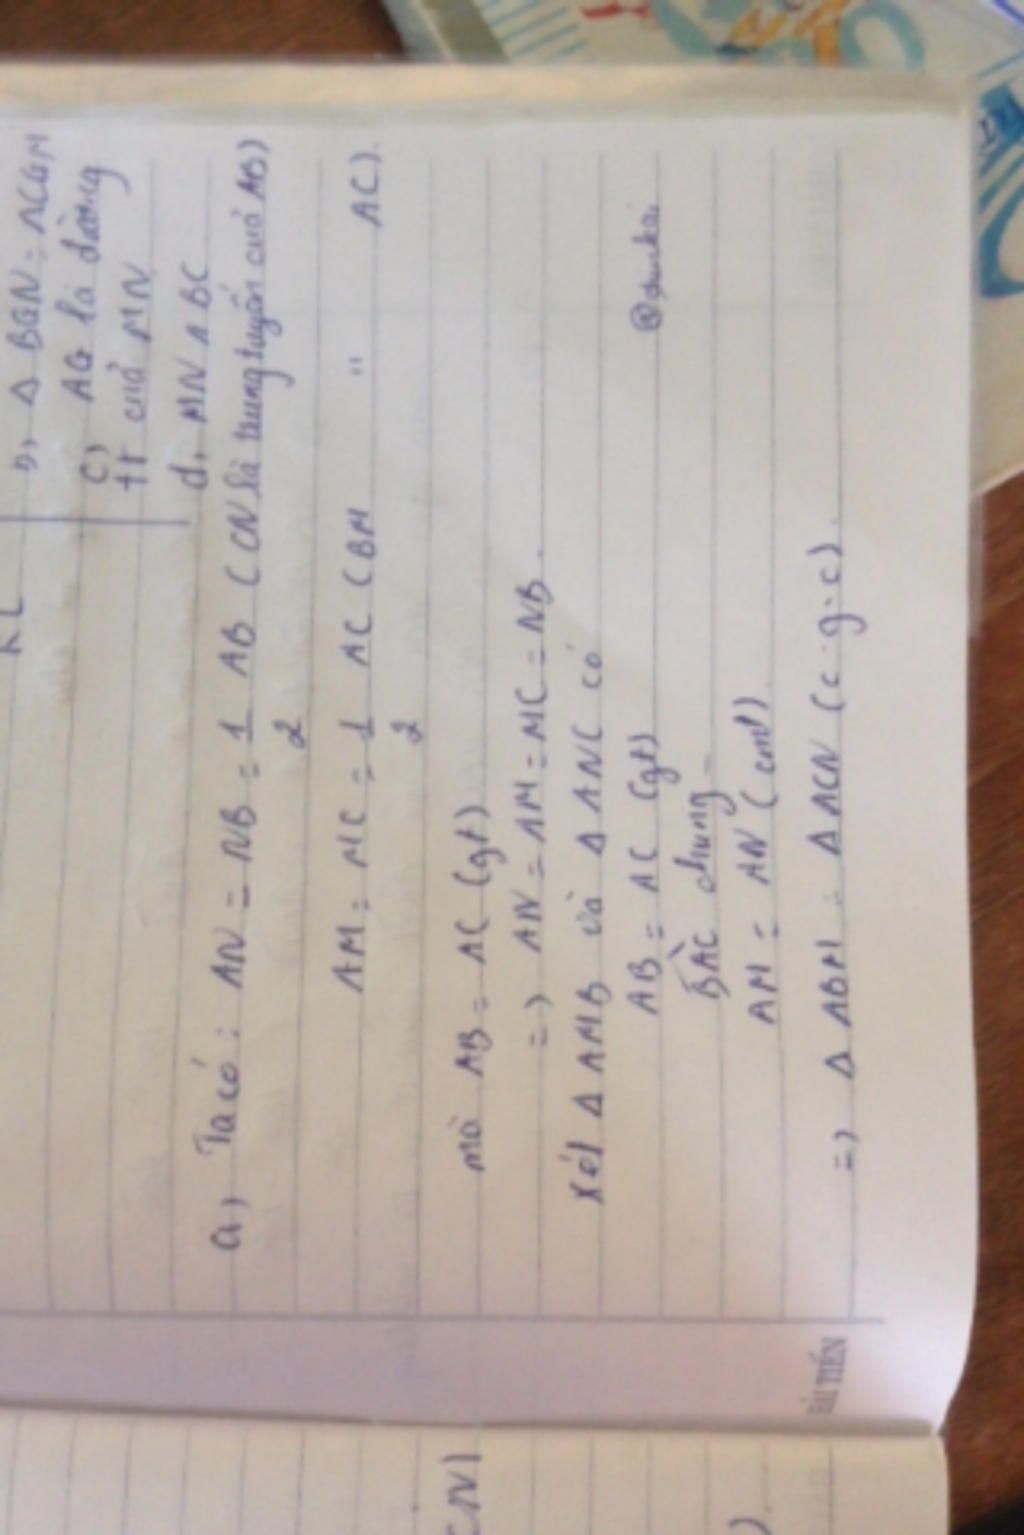 KL
b, Δ BGN = ΔCGM
c) AG là đường
tt của MN
d, MN ∧ BC
a, Ta có : AN = NB = 1 AB ( CN là trung tuyến của AB)
2
AM = MC = 1 AC ( BM " AC).
2
mà AB = AC (gt)
=> AN = AM = MC = NB.
xét Δ AMB và Δ ANC có
AB = AC (gt)
BAC chung
AM = AN ( cmt)
=> Δ ABM = Δ ACN ( c.g.c).
HẢI TIẾN